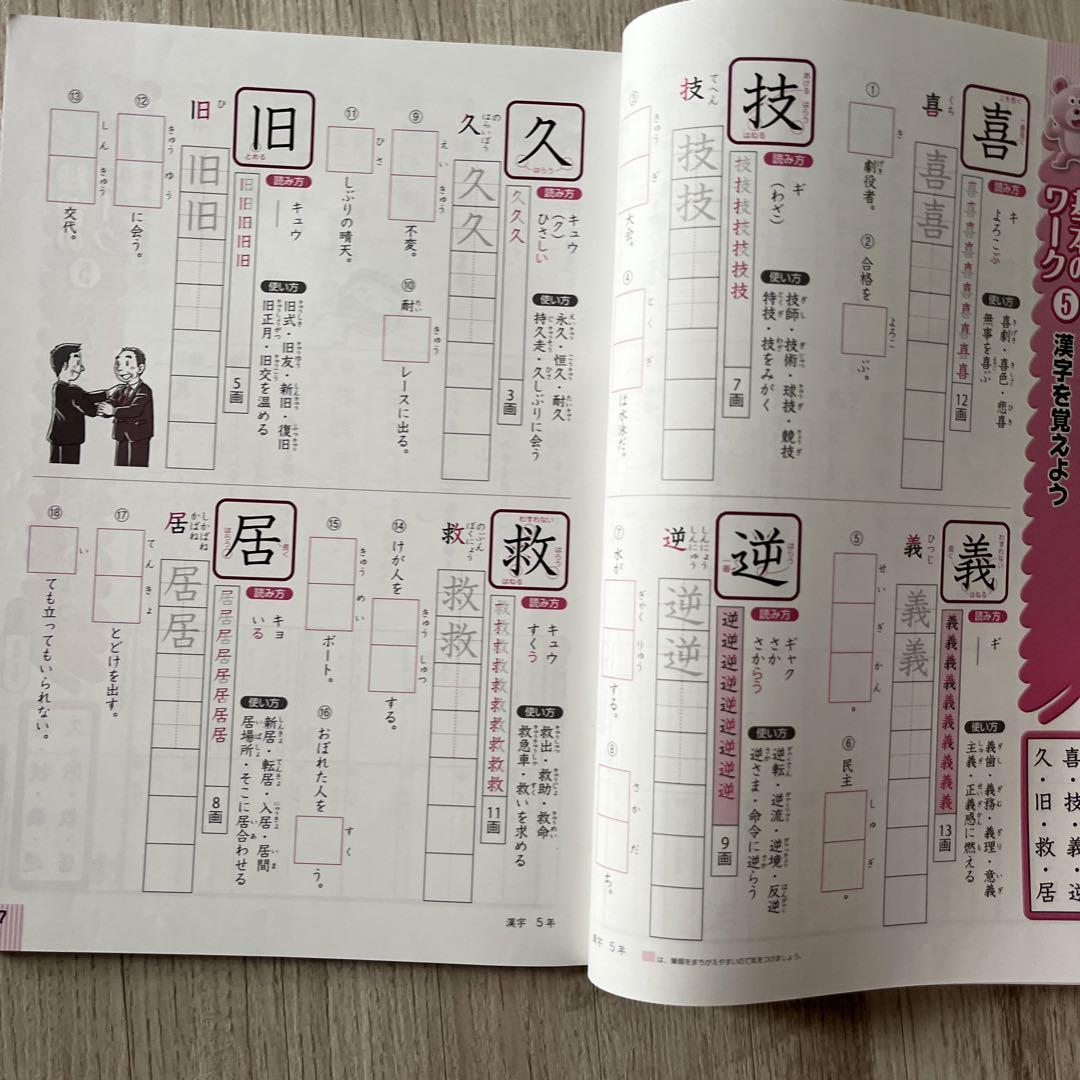 ワーク⑤ 漢字を覚えよう
喜・技・義・逆
久・旧・救・居
喜
喜 くち
読み方
キ
よろこぶ
使い方
喜劇・喜色・悲喜
無事を喜ぶ
喜喜
12画
① き
劇役者。
② 合格を
よろこ
ぶ。
技
あける はらう
はねる
技 てへん
読み方
ギ
(わざ)
使い方
技師・技術・球技・競技
特技・技をみがく
技技技技技技技
技技
7画
③ きゅう ぎ
大会。
④ とく ぎ
は水泳だ。
義
わすれない
長く
はねる
義 ひつじ
読み方
ギ
使い方
義歯・義務・義理・意義
主義・正義感に燃える
義義
13画
⑤ せい ぎ かん
。
⑥ 民主
しゅ ぎ
。
逆
はらう
逆 しんにょう しんにゅう
読み方
ギャク
さか
さからう
使い方
逆転・逆流・逆境・反逆
逆さま・命令に逆らう
逆逆
9画
⑦ 水が
ぎゃく りゅう
する。
⑧ さか だ
ち。
は、筆順をまちがえやすいので気をつけましょう。
漢字 5年
久
はらう
久 の はらいぼう
読み方
キュウ
(ク)
ひさしい
使い方
永久・恒久・耐久
持久走・久しぶりに会う
久久久
久久
3画
⑨ えい きゅう
不変。
⑩ 耐
たい きゅう
レースに出る。
⑪ ひさ
しぶりの晴天。
旧
とめる
旧 ひ
読み方
キュウ
使い方
旧式・旧友・新旧・復旧
旧正月・旧交を温める
旧旧旧旧旧
旧旧
5画
⑫ きゅう ゆう
に会う。
⑬ しん きゅう
交代。
救
わすれない
はらう
はねる
救 のぶん ぼくにょう
読み方
キュウ
すくう
使い方
救出・救助・救命
救急車・救いを求める
救救
11画
⑭ けが人を
きゅう しゅつ
する。
⑮ きゅう めい
ボート。
⑯ おぼれた人を
すく
う。
居
長く
はらう
居 しかばね かばね
読み方
キョ
いる
使い方
新居・転居・入居・居間
居場所・そこに居合わせる
居居居居居居居居
居居
8画
⑰ てん きょ
とどけを出す。
⑱ い
ても立ってもいられない。
漢字 5年
7